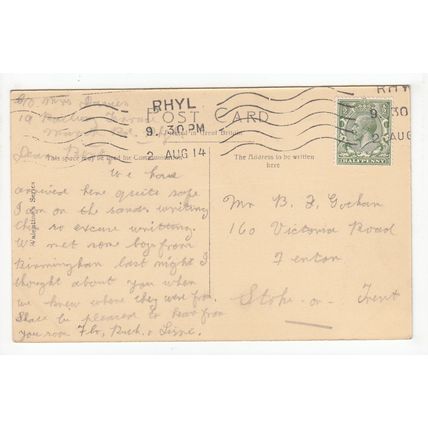 RHYL
9. 30 PM
2 AUG 14
RHY
9 30
2 AUG
HALFPENNY
POST CARD
Printed in Great Britain
This space may be used for Communication
The Address to be written
here
Valentine's Series
C/o Mrs
19
Dear
We have
arrived here quite safe
I am on the sands writing
this so excuse writting.
We met some boys from
Birmingham last night I
thought about you when
we knew where they were from
Shall be pleased to hear from
you soon Flo,
Mr B. J.
160 Victoria Road
Fenton
Stoke-on-Trent